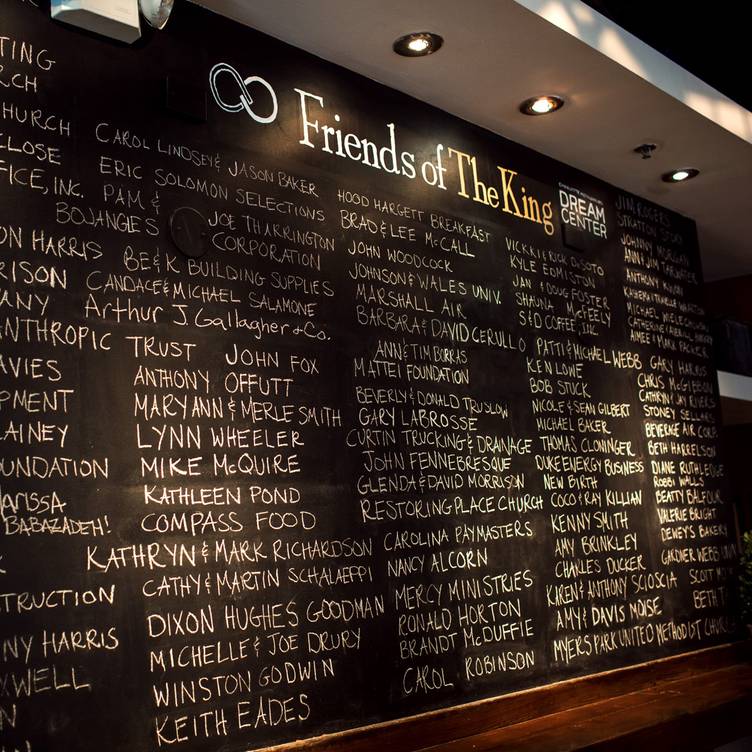 Friends of The King
DREAM
CENTER
TING
RCH
HURCH
CLOSE
FICE, INC.
ON HARRIS
RISON
ANY
NTHROPIC
AVIES
PMENT
LAINEY
OUNDATION
MARISSA
BABAZADEH!
TRUCTION
NY HARRIS
XWELL
N
CAROL LINDSEY & JASON BAKER
ERIC SOLOMON SELECTIONS
PAM &
BOJANGLES
JOE THARRINGTON
CORPORATION
BE&K BUILDING SUPPLIES
CANDACE & MICHAEL SALAMONE
Arthur J. Gallagher & Co.
TRUST
JOHN FOX
ANTHONY OFFUTT
MARY ANN & MERLE SMITH
LYNN WHEELER
MIKE McQUIRE
KATHLEEN POND
COMPASS FOOD
KATHRYN & MARK RICHARDSON
CATHY & MARTIN SCHALAEPPI
DIXON HUGHES GOODMAN
MICHELLE & JOE DRURY
WINSTON GODWIN
KEITH EADES
HOOD HARGETT BREAKFAST
BRAD & LEE McCALL
JOHN WOODCOCK
JOHNSON & WALES UNIV.
MARSHALL AIR
BARBARA & DAVID CERULLO
ANN & TIM BURRAS
MATTEI FOUNDATION
BEVERLY & DONALD TRUSLOW
GARY LABROSSE
CURTIN TRUCKING & DRAINAGE
JOHN FENNEBRESQUE
GLENDA & DAVID MORRISON
RESTORING PLACE CHURCH
CAROLINA PAYMASTERS
NANCY ALCORN
MERCY MINISTRIES
RONALD HORTON
BRANDT McDUFFIE
CAROL ROBINSON
VICKI & RICK
KYLE EDMISTON
JAN & DOUG FOSTER
SHAUNA McFEELY
S&D COFFEE, INC.
PATTI & MICHAEL WEBB
KEN LOWE
BOB STUCK
NICOLE & SEAN GILBERT
MICHAEL BAKER
THOMAS CLONINGER
DUKE ENERGY BUSINESS
NEW BIRTH
COCO & RAY KILLIAN
KENNY SMITH
AMY BRINKLEY
CHARLES DUCKER
KAREN & ANTHONY SCIOSCIA
AMY & DAVIS NOISE
MYERS PARK UNITED METHODIST CHURCH
JIM ROGERS
STRATTON
JOHNNY
ANN & JIM
ANTHONY
MICHAEL
AIMEE & MARK PACKER
GARY HARRIS
CHRIS McGIBBON
CATHRYN & JAY RIVERS
STONEY SELLARS
BEVERAGE AIR CORP
BETH HARRELSON
DIANE RUTHLEDGE
ROBBI WALLS
BEATTY BALFOUR
VALERIE BRIGHT
DEWEY'S BAKERY
GARDNER WEBB
SCOTT
BETH